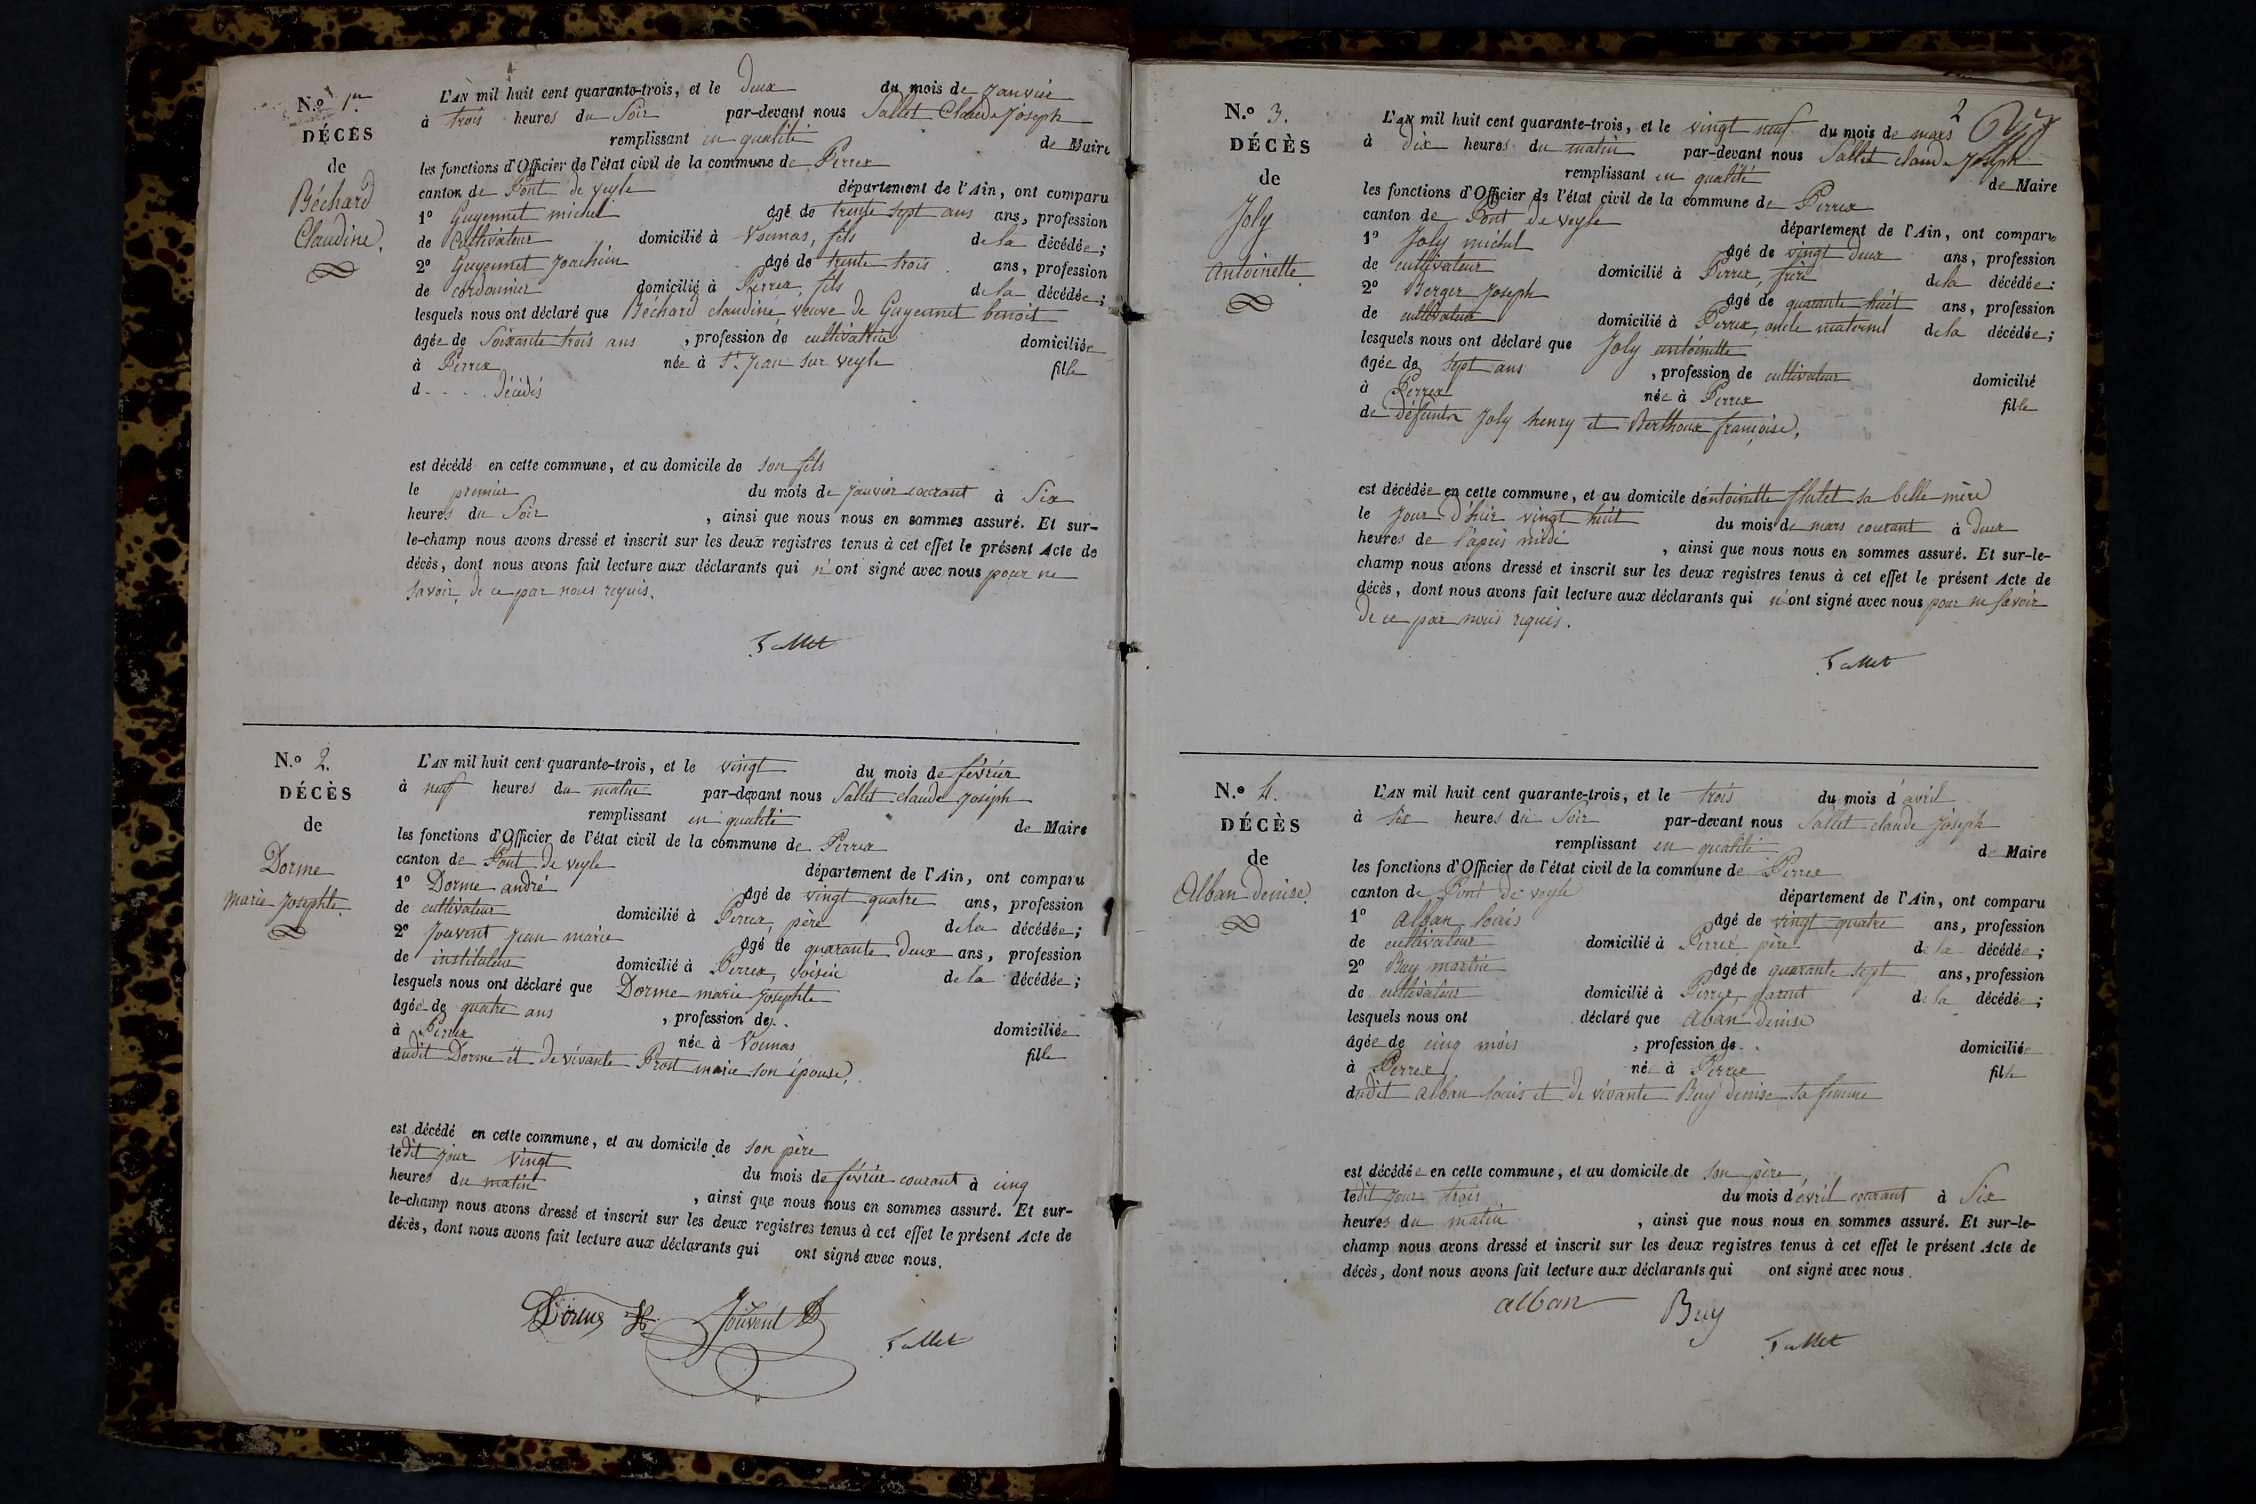 N.º 1er
DÉCÈS
de
Béchard
Claudine.
L'AN mil huit cent quarante-trois, et le deux du mois de janvier
à trois heures du Soir par-devant nous Sallet Claude Joseph
remplissant en qualité de Maire
les fonctions d'Officier de l'état civil de la commune de Perrex
canton de Pont de veyle département de l'Ain, ont comparu
1º Guyennet michel âgé de trente sept ans ans, profession
de Cultivateur domicilié à Vonnas, fils de la décédée;
2º Guyennet Joachim âgé de trente trois ans, profession
de cordonnier domicilié à Perrex, fils de la décédée;
lesquels nous ont déclaré que Béchard claudine, veuve de Guyennet benoit
âgée de Soixante trois ans , profession de cultivatrice domiciliée
à Perrex née à St. Jean sur veyle fille
d- . . . décédés
est décédé en cette commune, et au domicile de son fils
le premier du mois de janvier courant à Six
heures du Soir , ainsi que nous nous en sommes assuré. Et sur-
le-champ nous avons dressé et inscrit sur les deux registres tenus à cet effet le présent Acte de
décès, dont nous avons fait lecture aux déclarants qui n'ont signé avec nous pour ne
savoir, de ce par nous requis.
Sallet
N.º 2.
DÉCÈS
de
Dorme
marie Josephte.
L'AN mil huit cent quarante-trois, et le vingt du mois de février
à neuf heures du matin par-devant nous Sallet claude Joseph
remplissant en qualité de Maire
les fonctions d'Officier de l'état civil de la commune de Perrex
canton de Pont de veyle département de l'Ain, ont comparu
1º Dorme andré âgé de vingt quatre ans, profession
de cultivateur domicilié à Perrex, père de la décédée;
2º Jouvent Jean marie âgé de quarante deux ans, profession
de instituteur domicilié à Perrex, voisin de la décédée;
lesquels nous ont déclaré que Dorme marie Josephte
âgée de quatre ans , profession de . . domiciliée
à Perrex née à Vonnas fille
dudit Dorme et de vivante Prost marie son épouse.
est décédé en cette commune, et au domicile de son père
ledit jour vingt du mois de février courant à cinq
heures du matin , ainsi que nous nous en sommes assuré. Et sur-
le-champ nous avons dressé et inscrit sur les deux registres tenus à cet effet le présent Acte de
décès, dont nous avons fait lecture aux déclarants qui ont signé avec nous.
Dorme Jouvent
Sallet
2
N.º 3.
DÉCÈS
de
Joly
Antoinette.
L'AN mil huit cent quarante-trois, et le vingt neuf du mois de mars
à dix heures du matin par-devant nous Sallet claude Joseph
remplissant en qualité de Maire
les fonctions d'Officier de l'état civil de la commune de Perrex
canton de Pont de veyle département de l'Ain, ont comparu
1º Joly michel âgé de vingt deux ans, profession
de cultivateur domicilié à Perrex, frère de la décédée;
2º Berger Joseph âgé de quarante huit ans, profession
de cultivateur domicilié à Perrex, oncle maternel de la décédée;
lesquels nous ont déclaré que Joly antoinette
âgée de sept ans , profession de cultivateur domicilié
à Perrex née à Perrex fille
de défunts Joly henry et Berthoux françoise,
est décédée en cette commune, et au domicile d'antoinette flutet sa belle mère
le jour d'hier vingt huit du mois de mars courant à deux
heures de l'après midi , ainsi que nous nous en sommes assuré. Et sur-le-
champ nous avons dressé et inscrit sur les deux registres tenus à cet effet le présent Acte de
décès, dont nous avons fait lecture aux déclarants qui n'ont signé avec nous pour ne savoir
de ce par nous requis.
Sallet
N.º 4.
DÉCÈS
de
Alban denise.
L'AN mil huit cent quarante-trois, et le trois du mois d'avril
à six heures du Soir par-devant nous Sallet claude Joseph
remplissant en qualité de Maire
les fonctions d'Officier de l'état civil de la commune de Perrex
canton de Pont de veyle département de l'Ain, ont comparu
1º Alban louis âgé de vingt quatre ans, profession
de cultivateur domicilié à Perrex père de la décédée;
2º Buy martin âgé de quarante sept ans, profession
de cultivateur domicilié à Perrex, parent de la décédée;
lesquels nous ont déclaré que Aban denise
âgée de cinq mois , profession de . . domiciliée
à Perrex née à Perrex fille
dudit alban louis et de vivante Buy denise sa femme
est décédée en cette commune, et au domicile de son père,
ledit jour trois du mois d'avril courant à Six
heures du matin , ainsi que nous nous en sommes assuré. Et sur-le-
champ nous avons dressé et inscrit sur les deux registres tenus à cet effet le présent Acte de
décès, dont nous avons fait lecture aux déclarants qui ont signé avec nous.
alban Buy
Sallet